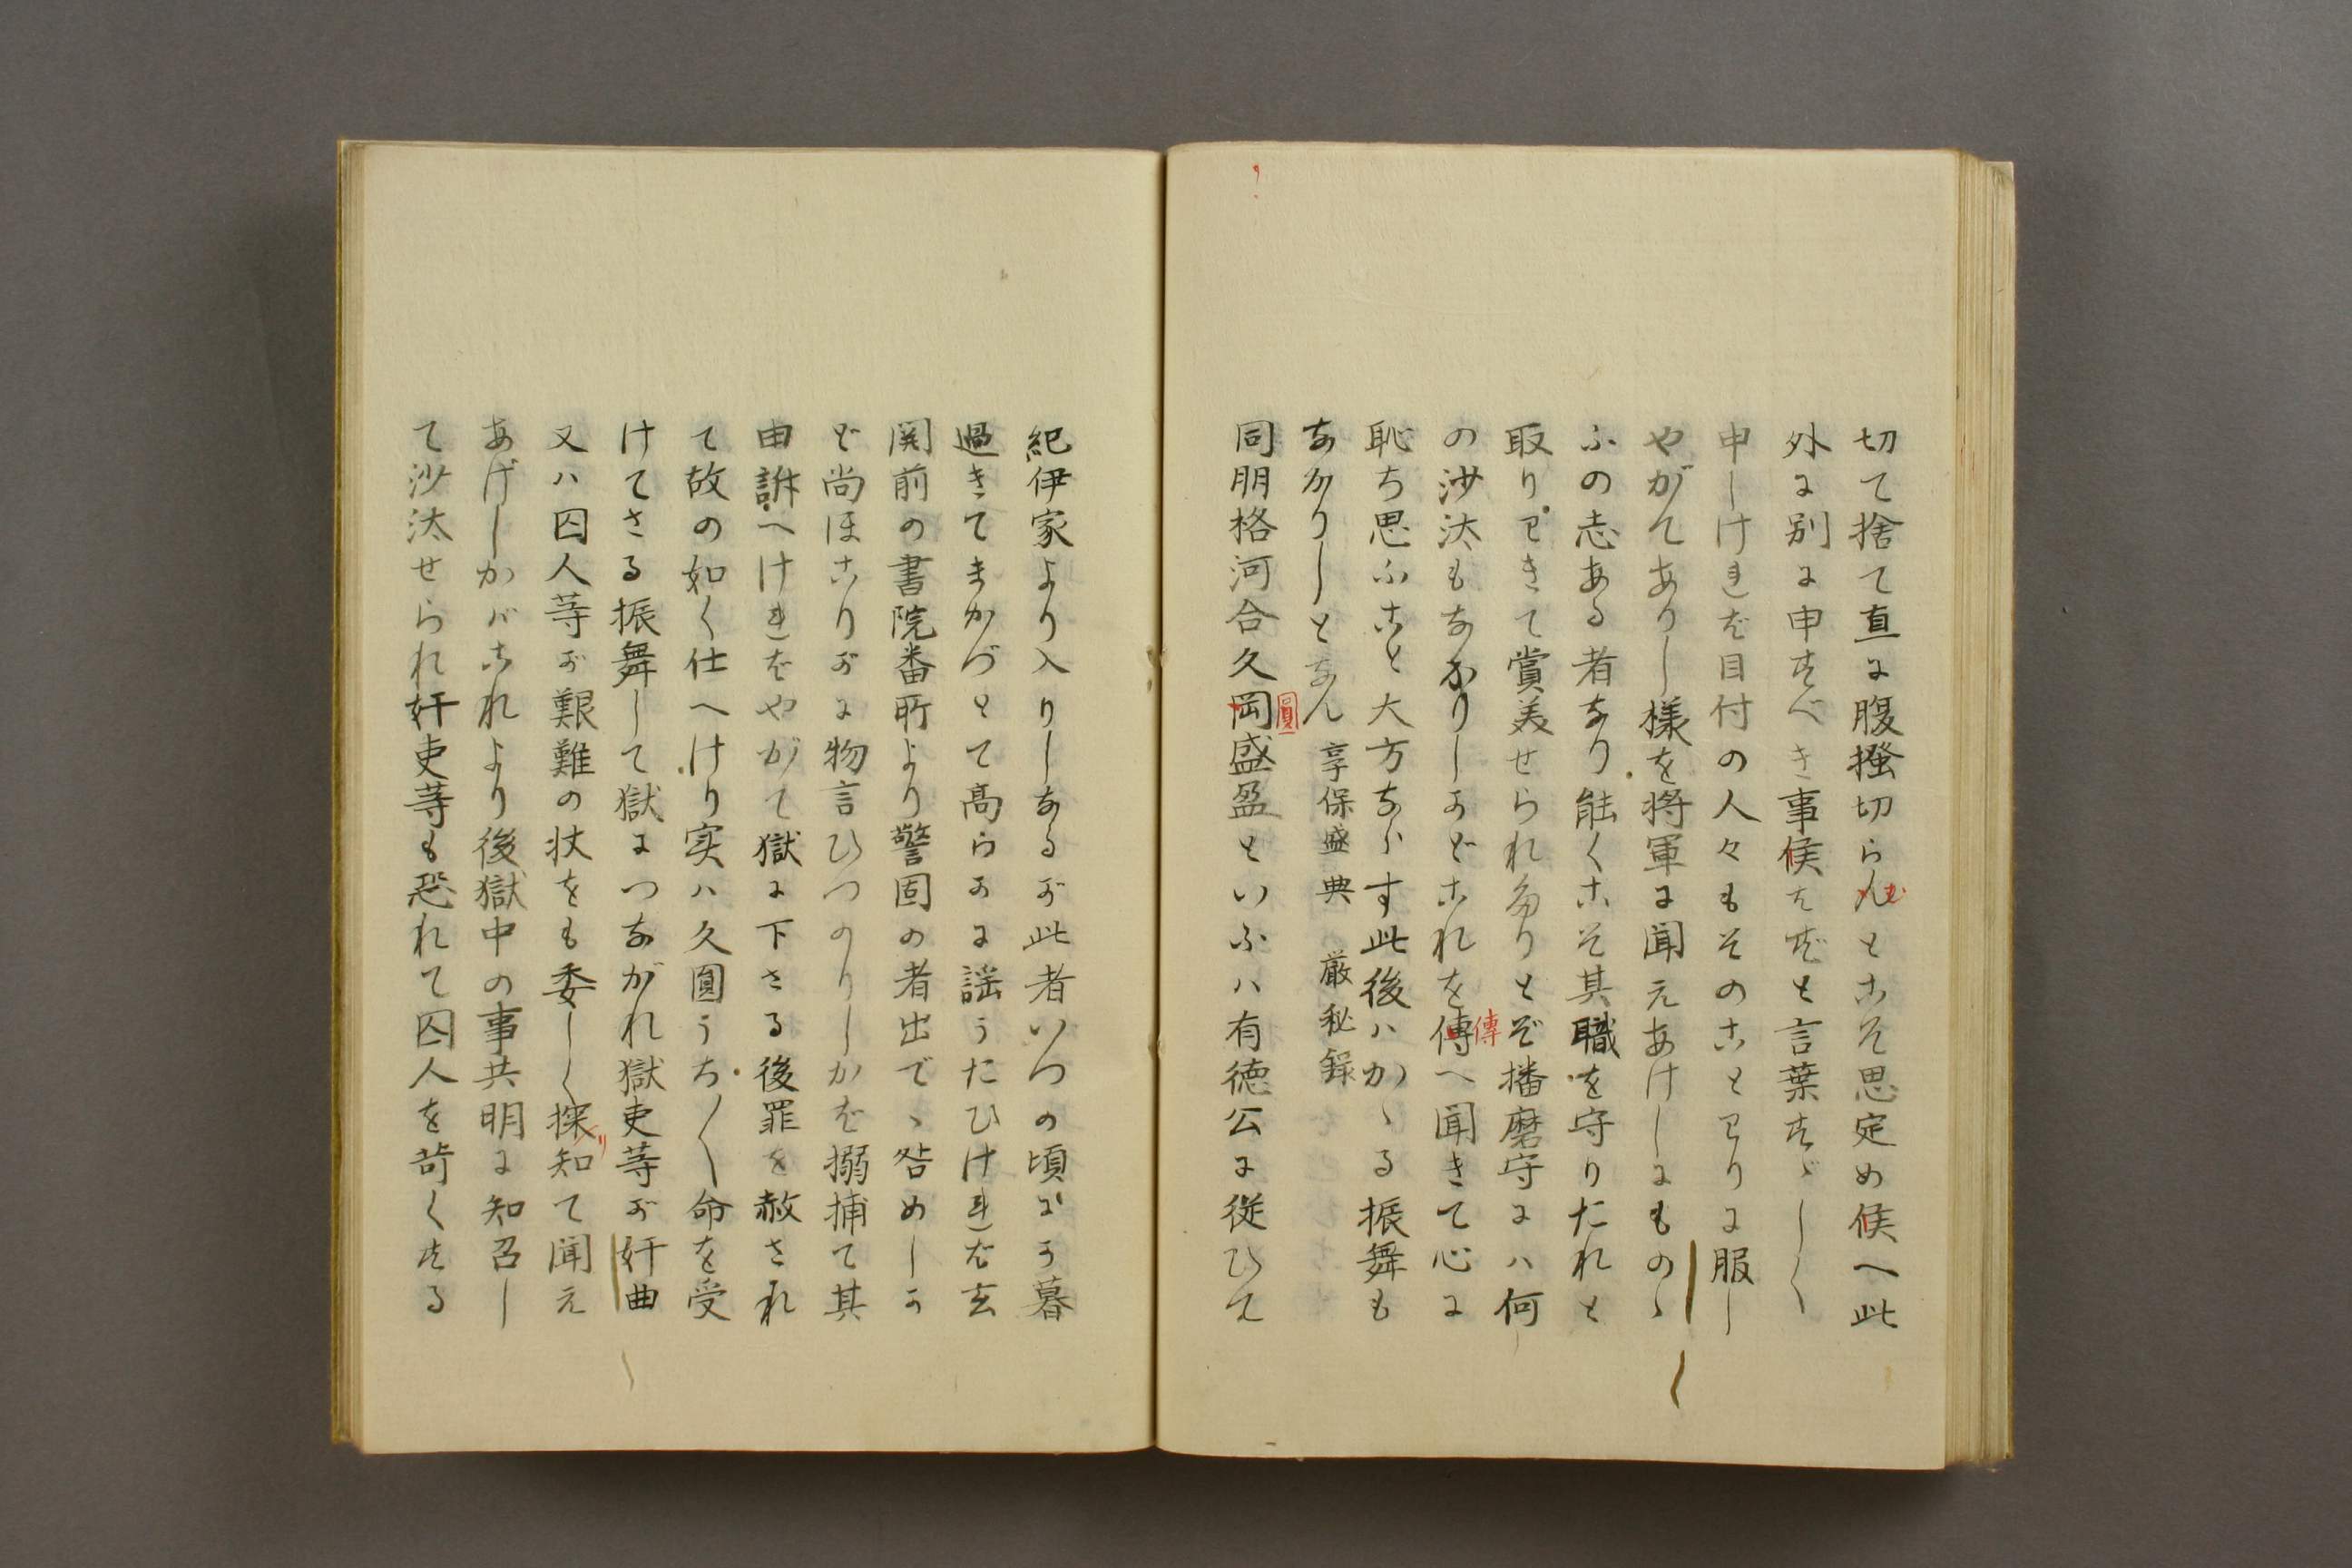 切て捨て直に腹掻切らんむとこそ思定め候へ此
外に別に申すべき事候はずと言葉すゞしく
申しければ目付の人々もそのことわりに服し
やがてありし様を将軍に聞えあけしにものゝ
ふの志ある者なり能くこそ其職を守りたれと
取りわきて賞美せられたりとぞ播磨守には何
の沙汰もなかりしかどこれを傳傳へ聞きて心に
恥ち思ふこと大方ならす此後ハかゝる振舞も
なかりしとなん 享保盛典 厳秘録
同朋格河合久岡圓盛盈といふハ有徳公に従ひて
紀伊家より入りしなるが此者いつの頃にか暮
過きてまかづとて高らかに謡うたひければ玄
関前の書院番所より警固の者出でゝ咎めしか
ど尚ほこりかに物言ひつのりしかば搦捕て其
由訴へければやがて獄に下さる後罪を赦され
て故の如く仕へけり実ハ久圓うち〱命を受
けてさる振舞して獄につながれ獄吏等が奸曲
又ハ囚人等が艱難の状をも委しく探り知て聞え
あげしかバこれより後獄中の事共明に知召し
て沙汰せられ奸吏等も恐れて囚人を苛くする